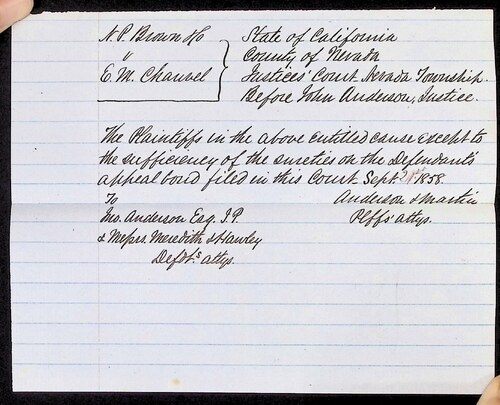 N. P. Brown & Co
"
E. M. Chauvel
State of California
County of Nevada
Justices' Court Nevada Township.
Before John Anderson, Justice.
The Plaintiffs in the above entitled cause except to
the sufficiency of the sureties on the Defendants
appeal bond filed in this Court Sept. 1858.
Anderson & Martin
Plffs attys.
To
Jno. Anderson Esq. J. P.
& Messrs. Meredith & Hawley
Defdts. attys.